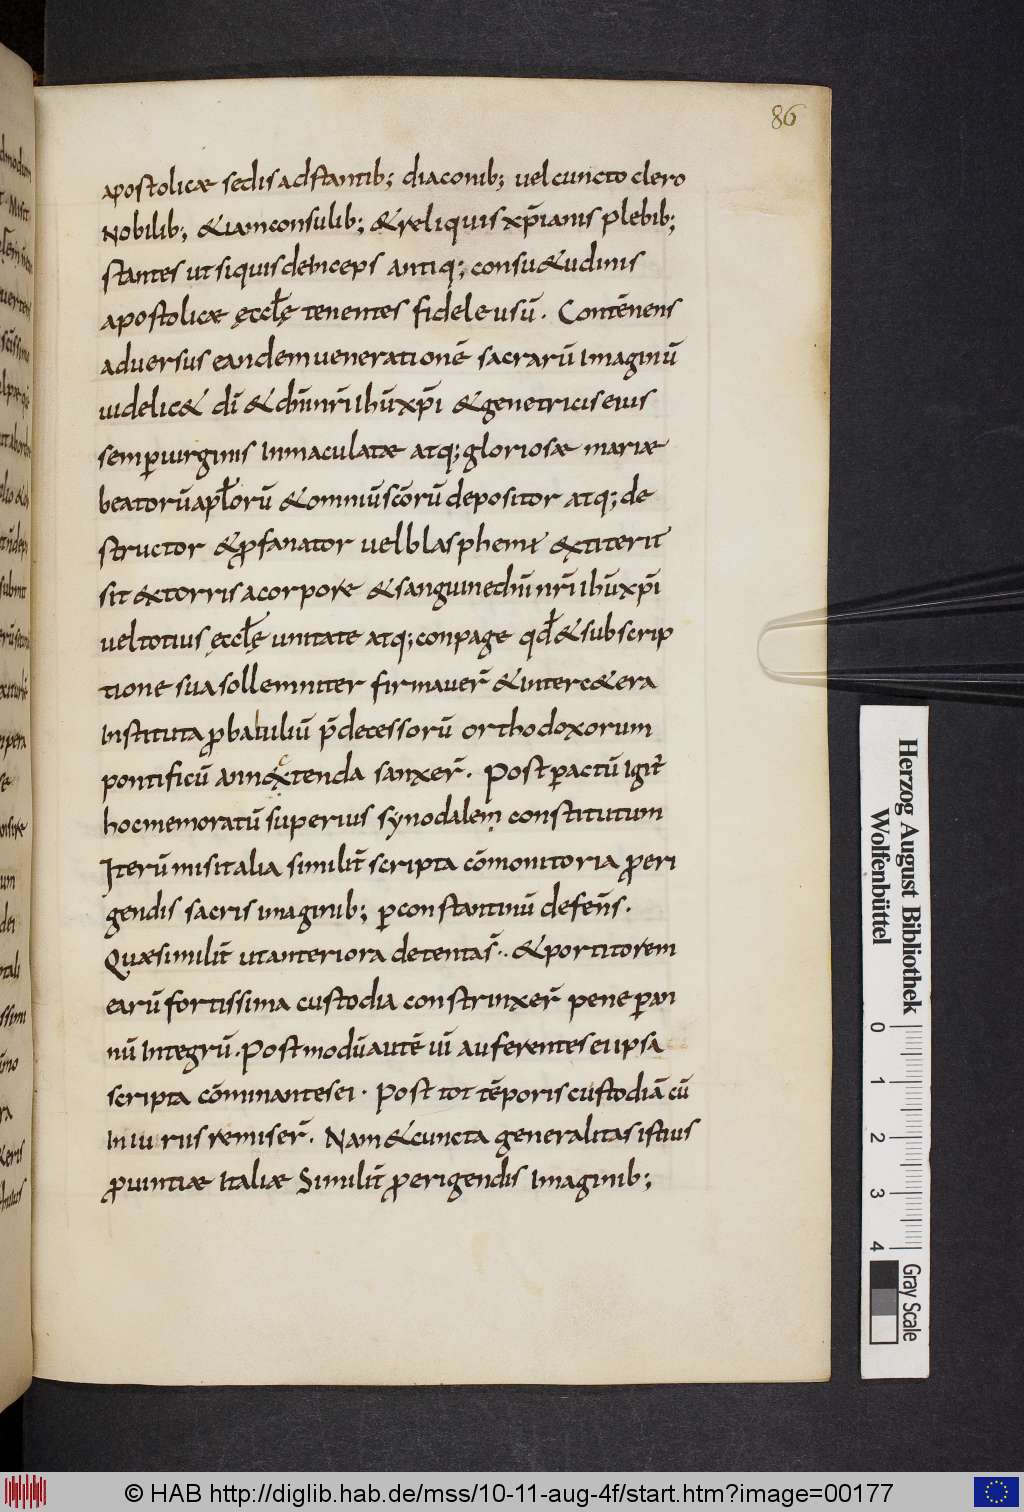 86
apostolicæ sedis adstantib; diaconib; vel cuncto clero
Nobilib; &iam consulib; & reliquis xp̄ianis plebib;
stantes ut siquis deinceps antiq; consu&udinis
apostolicæ ęccl̄ę tenentes fidele usū. Contēnens
adversus eandem venerationē sacrarū imaginū
uidelic& dī & dn̄i nr̄i ihū xp̄i & genetricis eius
semp̄ virginis inmaculatæ atq; gloriosæ mariæ
beatorū apl̄orū & omniū sc̄orū depositor atq; de
structor & p̄fanator vel blasphemꝰ extiterit
sit extorris a corpore & sanguine dn̄i nr̄i ihū xp̄i
vel totius ęccl̄ę unitate atq; conpage qd̄ & subscrip
tione sua sollemniter firmaver̄ & inter c&era
Instituta p̄babiliū p̄decessorū orthodoxorum
pontificū annextenda sanxer̄. Post p̄actū igit̄
hoc memoratū superius synodalem constitutum
Iterū misit alia similit̄ scripta cōmonitoria p̄ eri
gendis sacris imaginib; p̄ constantinū defen̄s.
Quæ similit̄ ut anteriora detentas̄. & portitorem
earū fortissima custodia constrinxer̄ pene p̄ an
nū integrū. Post modū autē vī auferentes ei ipsa
scripta cōminantes ei. Post tot tēporis custodiā cū
iniu rus remiser̄. Nam & cuncta generalitas istius
p̄vintiæ italiæ Similit̄ p̄ erigendis imaginib;
Herzog August Bibliothek
Wolfenbüttel
0 1 2 3 4
Gray Scale
© HAB http://diglib.hab.de/mss/10-11-aug-4f/start.htm?image=00177